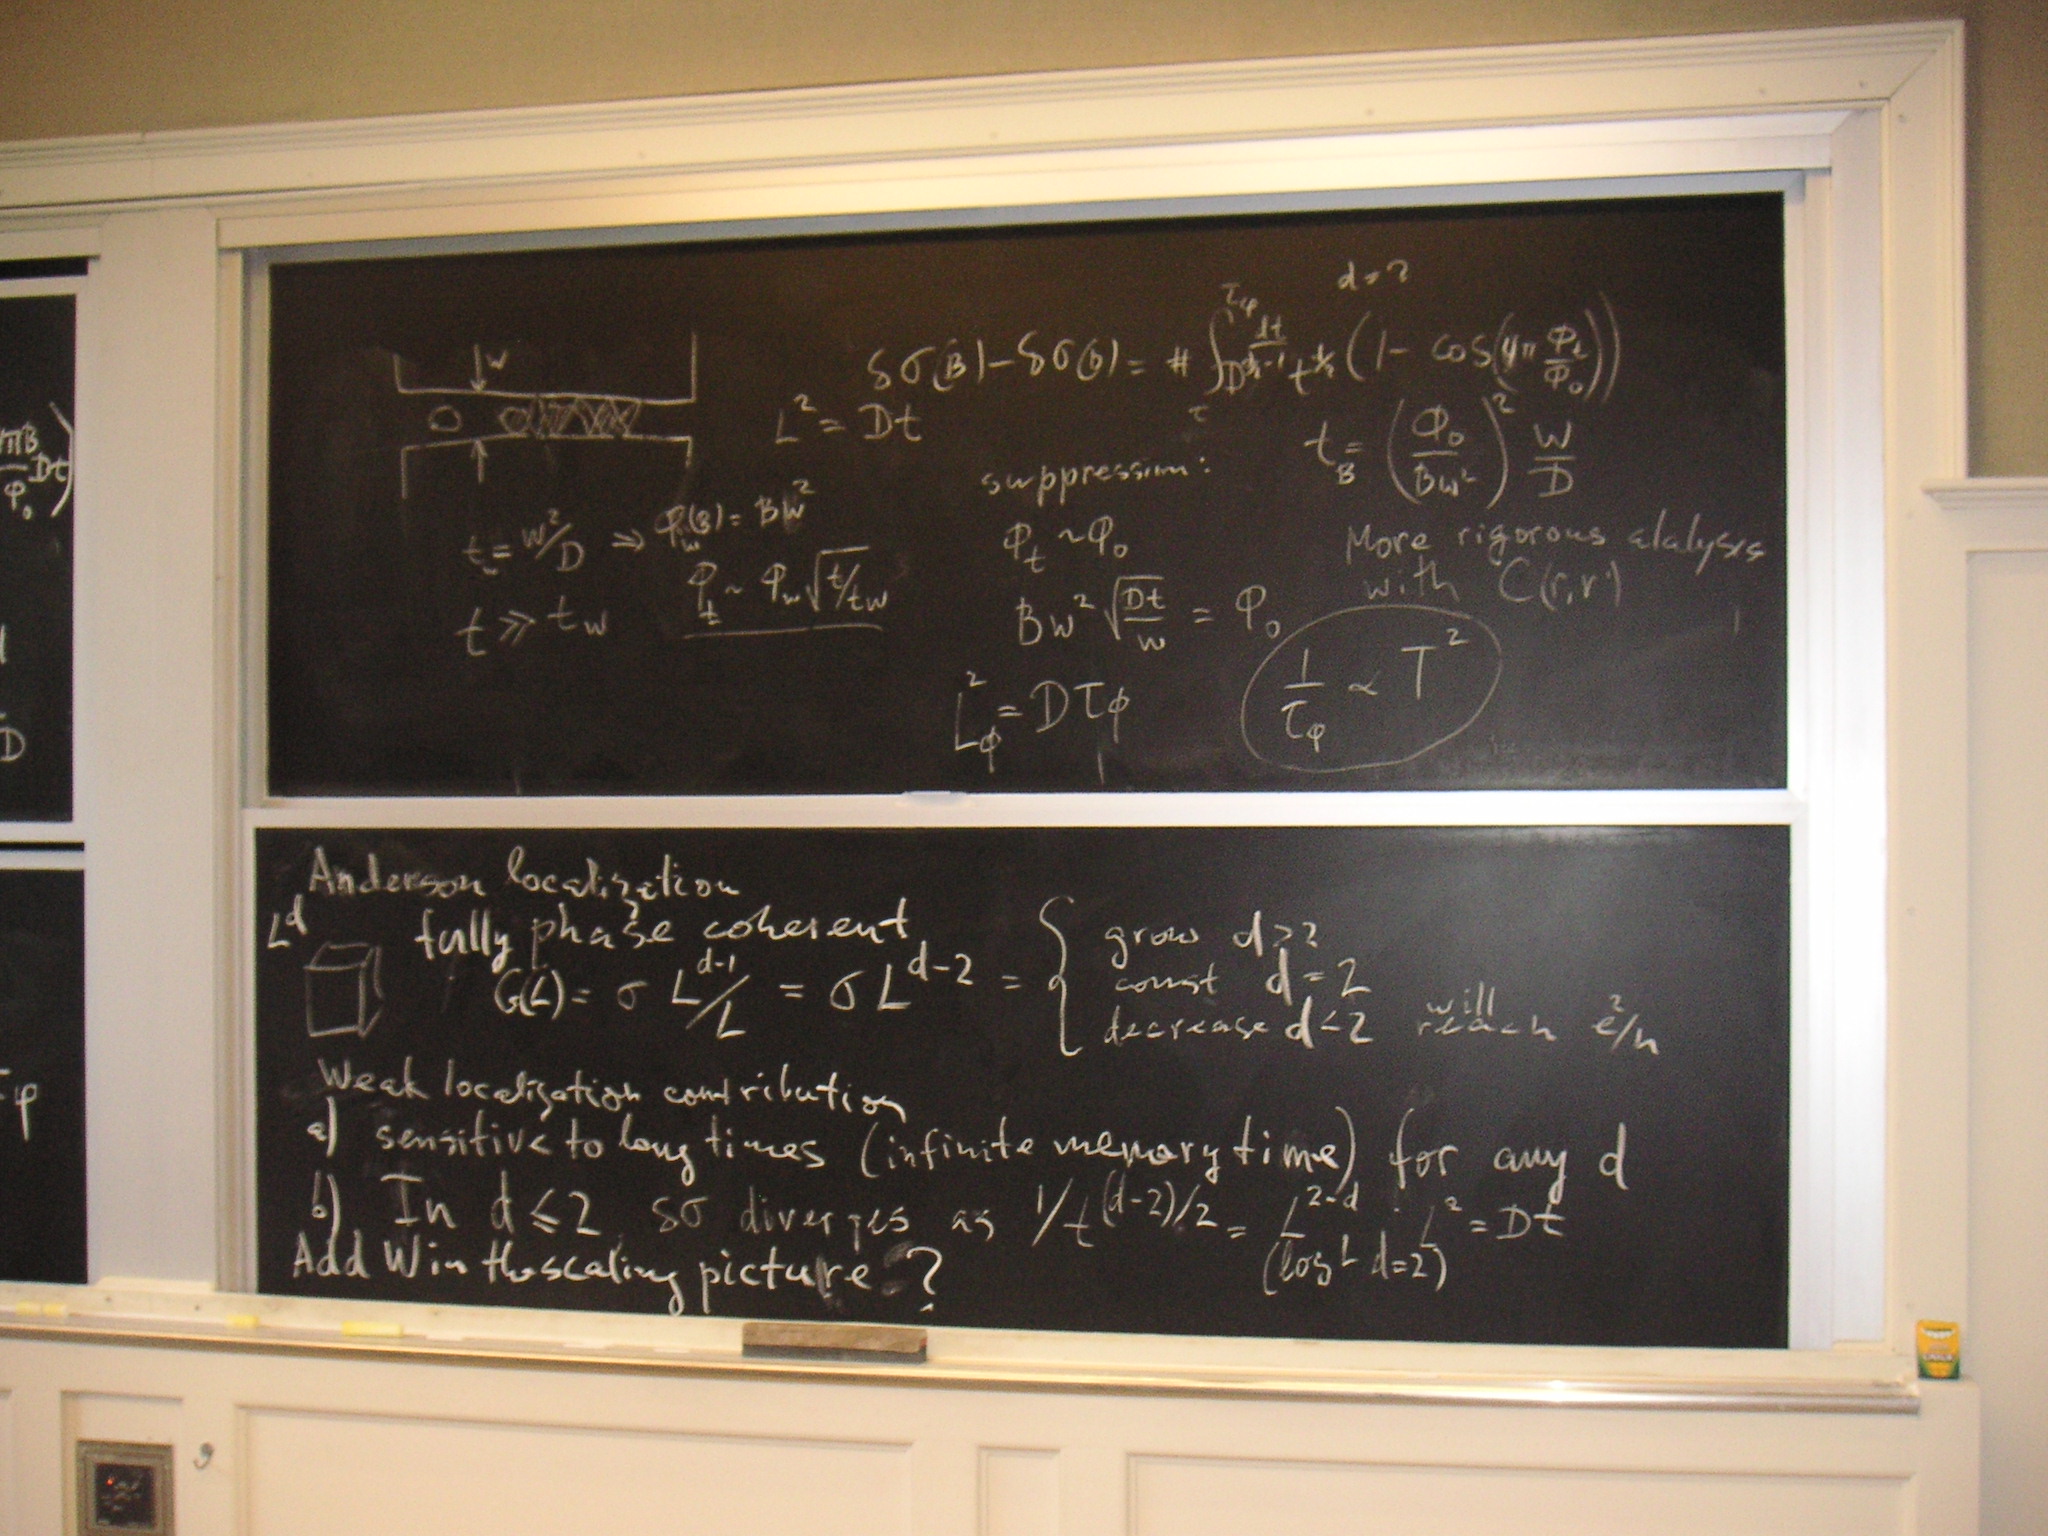 πB
φ₀ Dt)
D
φ
w
d=2
δσ(B)-δσ(0)= # ∫ dt (1- cos(4π Φt/Φ₀))
L² = Dt
t_B = (Φ₀/Bw²)² W/D
suppression:
t = w²/D ⇒ Φw(B) = BW²
Φt ~ Φ₀
More rigorous alalysis
with C(r,r')
Φt ~ Φw √(t/tw)
t ≫ tw
Bw² √Dt/w = Φ₀
1/τφ ∝ T²
Lφ² = Dτφ
Anderson localization
L^d
fully phase coherent
G(L) = σ L^(d-1)/L = σ L^(d-2) = {
grow d>2
const d=2
decrease d<2 will reach e²/h
Weak localization contribution
a) sensitive to long times (infinite memory time) for any d
b) In d⩽2 δσ diverges as 1/t^(d-2)/2 = L^(2-d) L² = Dt
(log L d=2)
Add W in the scaling picture ?